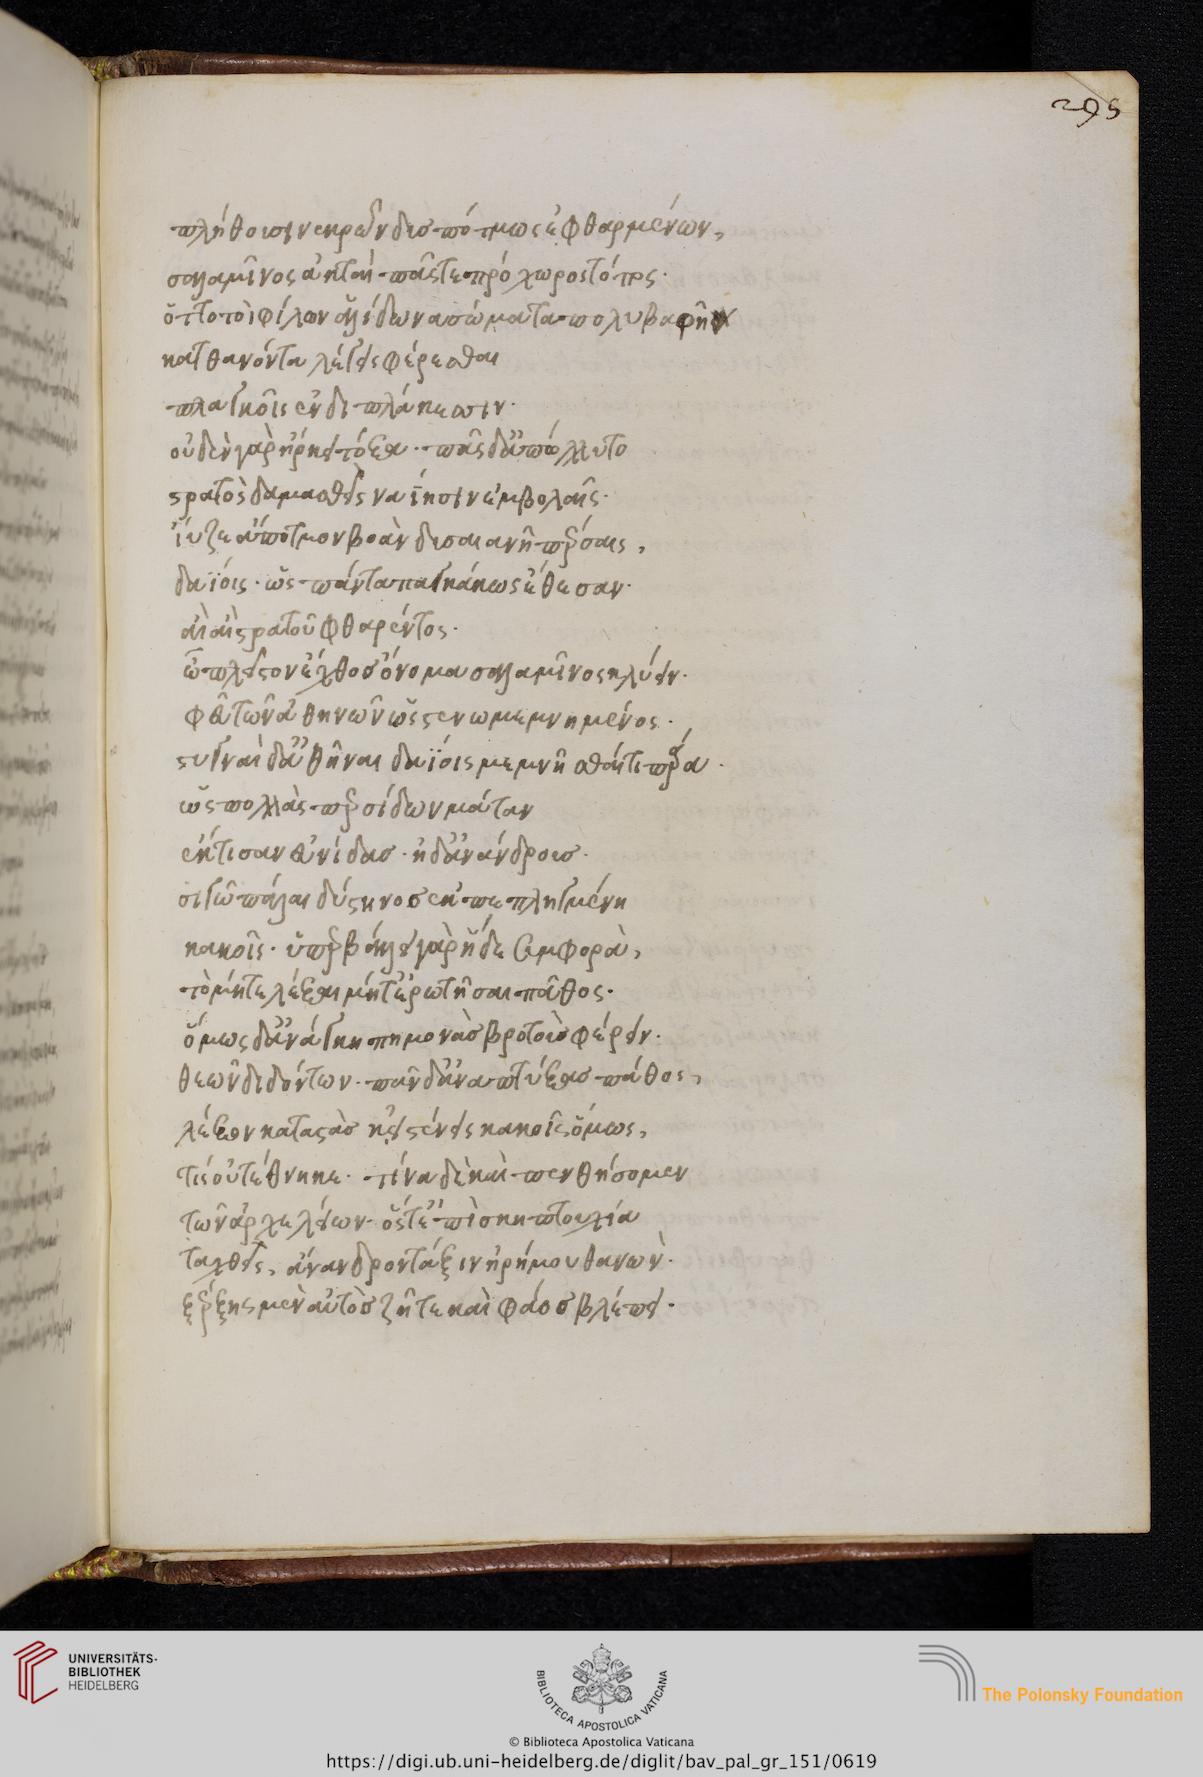 295
πλήθουσιν νεκρῶν δυσπότμως ἐφθαρμένων,
σαλαμῖνος ἀκταὶ πᾶς τε πρόχωρος τόπος.
ὀττοτοὶ φίλων ἁλίδωνα σώματα πολυβαφῆ
κατθανόντα λέγεις φέρεσθαι
πλαγκτοῖς ἐν δι πλάκεσσιν.
οὐδὲν γὰρ ἤρκει τόξα. πᾶς δ' ἀπώλλυτο
στρατὸς δαμασθεὶς ναΐησιν ἐμβολαῖς.
ἴυζε ἄποτμον βοὰν δυσαιανῆ πέρσαις,
δαΐοις. ὡς πάντα παγκάκως ἔθεσαν.
αἲ αἲ στρατοῦ φθαρέντος.
ὦ πλεῖστον ἔχθος ὄνομα σαλαμῖνος κλύειν.
φεῦ τῶν ἀθηνῶν ὡς στένω μεμνημένος.
στυγναὶ δ' ἀθῆναι δαΐοις μεμνῆσθαί τι πάρα.
ὡς πολλὰς περσίδων μάταν
ἔκτισαν εὔνιδας. ἠδ' ἀνάνδρους.
σιγῶ πάλαι δύστηνος ἐκπεπληγμένη
κακοῖς. ὑπερβάλλει γὰρ ἥδε συμφορὰ,
τὸ μήτε λέξαι μήτ' ἐρωτῆσαι πάθος.
ὅμως δ' ἀνάγκη πημονὰς βροτοῖς φέρειν.
θεῶν διδόντων. πᾶν δ' ἀναπτύξας πάθος,
λέξον καταστὰς κεἰ στένεις κακοῖς ὅμως,
τίς οὐ τέθνηκε. τίνα δὲ καὶ πενθήσομεν
τῶν ἀρχελείων. ὅς τ' ἐπὶ σκηπτουχία
ταχθεὶς, ἄνανδρον τάξιν ἠρήμου θανών.
ξέρξης μὲν αὐτὸς ζῇ τε καὶ φάος βλέπει.
UNIVERSITÄTS-
BIBLIOTHEK
HEIDELBERG
BIBLIOTECA APOSTOLICA VATICANA
The Polonsky Foundation
© Biblioteca Apostolica Vaticana
https://digi.ub.uni-heidelberg.de/diglit/bav_pal_gr_151/0619